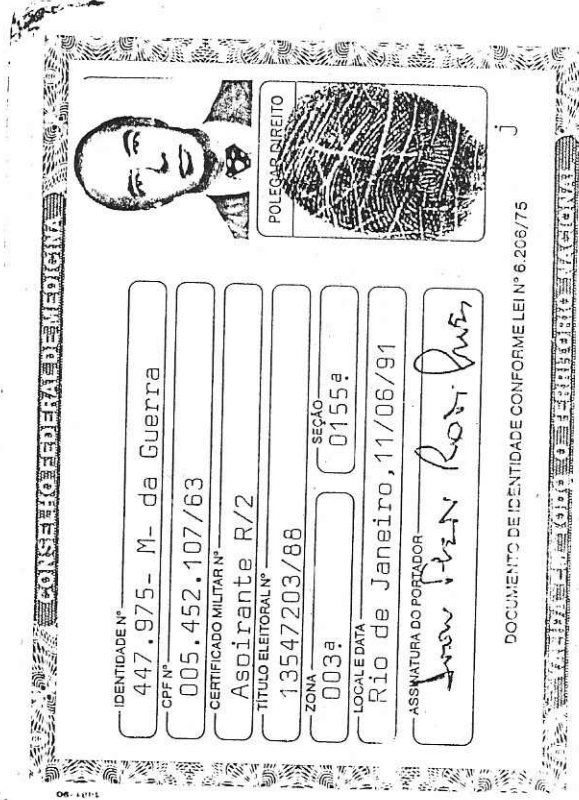 CONSELHO FEDERAL DE MEDICINA
IDENTIDADE Nº
447.975- M- da Guerra
CPF Nº
005.452.107/63
CERTIFICADO MILITAR Nº
Aspirante R/2
TÍTULO ELEITORAL Nº
13547203/88
ZONA
003ª
SEÇÃO
0155ª
LOCAL E DATA
Rio de Janeiro,11/06/91
ASSINATURA DO PORTADOR
POLEGAR DIREITO
j
DOCUMENTO DE IDENTIDADE CONFORME LEI Nº 6.206/75